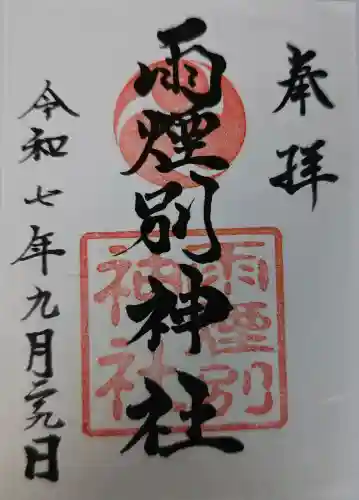 奉拝
雨煙別神社
雨煙別
神社
令和七年九月二九日